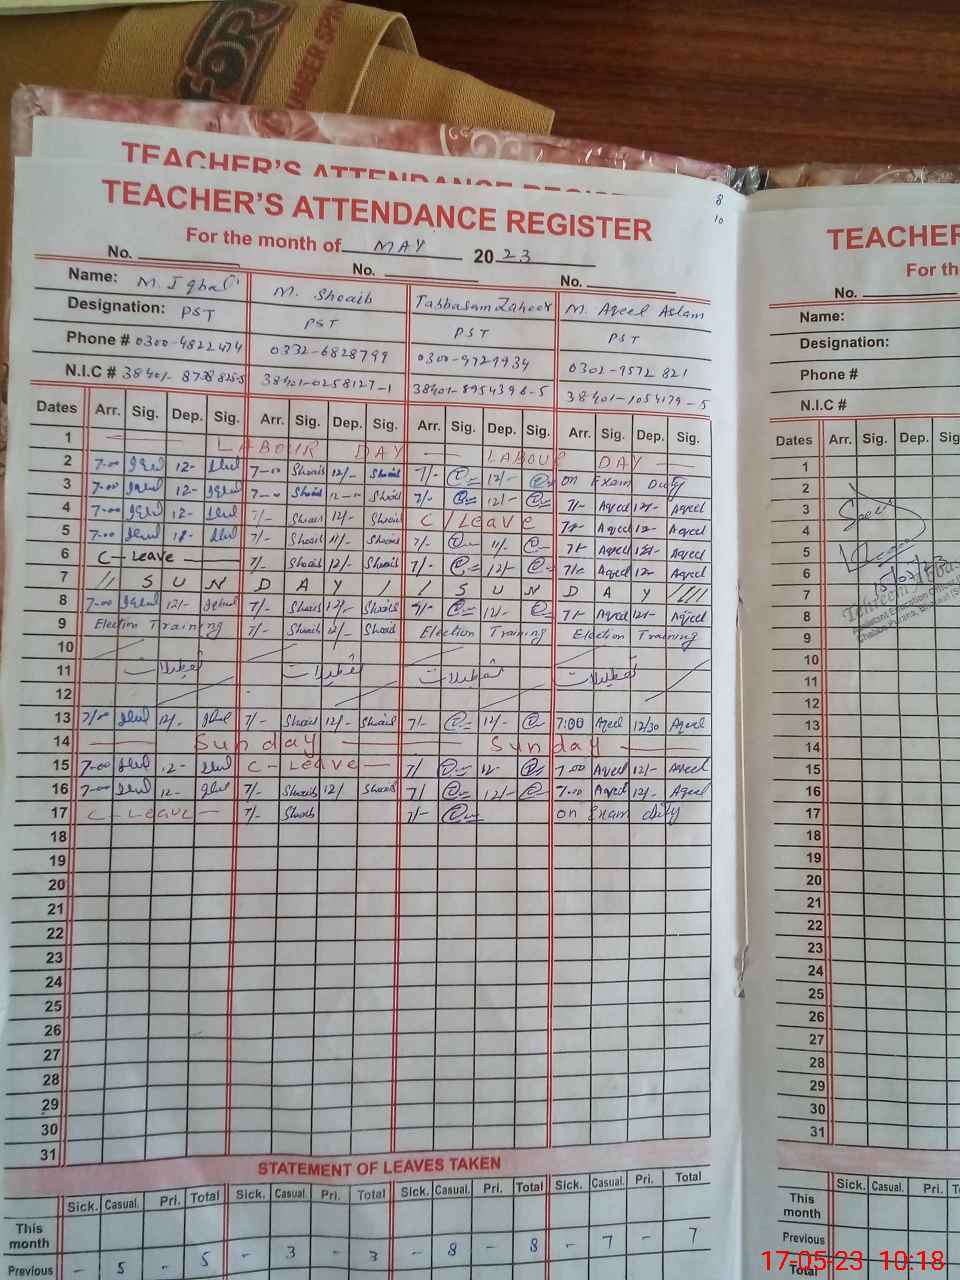 TOR
NUMBER SPAR
TEACHER'S ATTENDANCE REGISTER
TEACHER'S ATTENDANCE REGISTER
8
10
For the month of MAY 2023
No. No. No.
Name: M. Iqbal M. Shoaib Tabbasam Zaheer M. Aqeel Aslam
Designation: PST PST PST PST
Phone # 0300-4822474 0332-6828799 0300-9729934 0302-9572821
N.I.C # 38401-0258127-1 38401-8954396-5 38401-1054179-5
Dates Arr. Sig. Dep. Sig. Arr. Sig. Dep. Sig. Arr. Sig. Dep. Sig. Arr. Sig. Dep. Sig.
1 LABOUR DAY LABOUR DAY
2 7-00 Iqbal 12- Iqbal 7-00 Shoaib 12/- Shoaib 7/- 12/- on Exam Duty
3 7-00 Iqbal 12- Iqbal 7-00 Shoaib 12-00 Shoaib 7/- 12/- 7/- Aqeel 12/- Aqeel
4 7-00 Iqbal 12- Iqbal 7/- Shoaib 12/- Shoaib C/Leave 7/- Aqeel 12- Aqeel
5 7-00 Iqbal Iqbal 7/- Shoaib 11/- Shoaib 7/- 11/- 7/- Aqeel Aqeel
6 C-Leave 7/- Shoaib 12/- Shoaib 7/- 12/- 7/- Aqeel 12- Aqeel
7 // S U N D A Y / / S U N D A Y ////
8 7-00 Iqbal 12/- Iqbal 7/- Shoaib 12/- Shoaib 7/- 12/- 7/- Aqeel 12/- Aqeel
9 Election Training 7/- Shoaib 12/- Shoaib Election Training Election Training
10
11 تعطیلات تعطیلات تعطیلات تعطیلات
12
13 7/00 Iqbal 12/- Iqbal 7/- Shoaib 12/- Shoaib 7/- 12/- 7:00 Aqeel 12/30 Aqeel
14 Sunday Sunday
15 7-00 Iqbal 12- Iqbal C-Leave 7/ 12- 7.00 Aqeel 12/- Aqeel
16 7-00 Iqbal 12- Iqbal 7/- Shoaib 12/ Shoaib 7/ 12/- 7.00 Aqeel 12/- Aqeel
17 C-Leave 7/- Shoaib 7/- on Exam duty
18
19
20
21
22
23
24
25
26
27
28
29
30
31
STATEMENT OF LEAVES TAKEN
Sick. Casual. Pri. Total Sick. Casual. Pri. Total Sick. Casual. Pri. Total Sick. Casual. Pri. Total
This month
Previous - 5 - 5 - 3 - 3 - 8 - 8 - 7 - 7
TEACHER
For th
No.
Name:
Designation:
Phone #
N.I.C #
Dates Arr. Sig. Dep. Sig
1
2
3
4
5
6
7
8
9
10
11
12
13
14
15
16
17
18
19
20
21
22
23
24
25
26
27
28
29
30
31
Seen
Assistant Education Officer
Sick. Casual. Pri. T
This month
Previous
Total
17-05-23 10:18